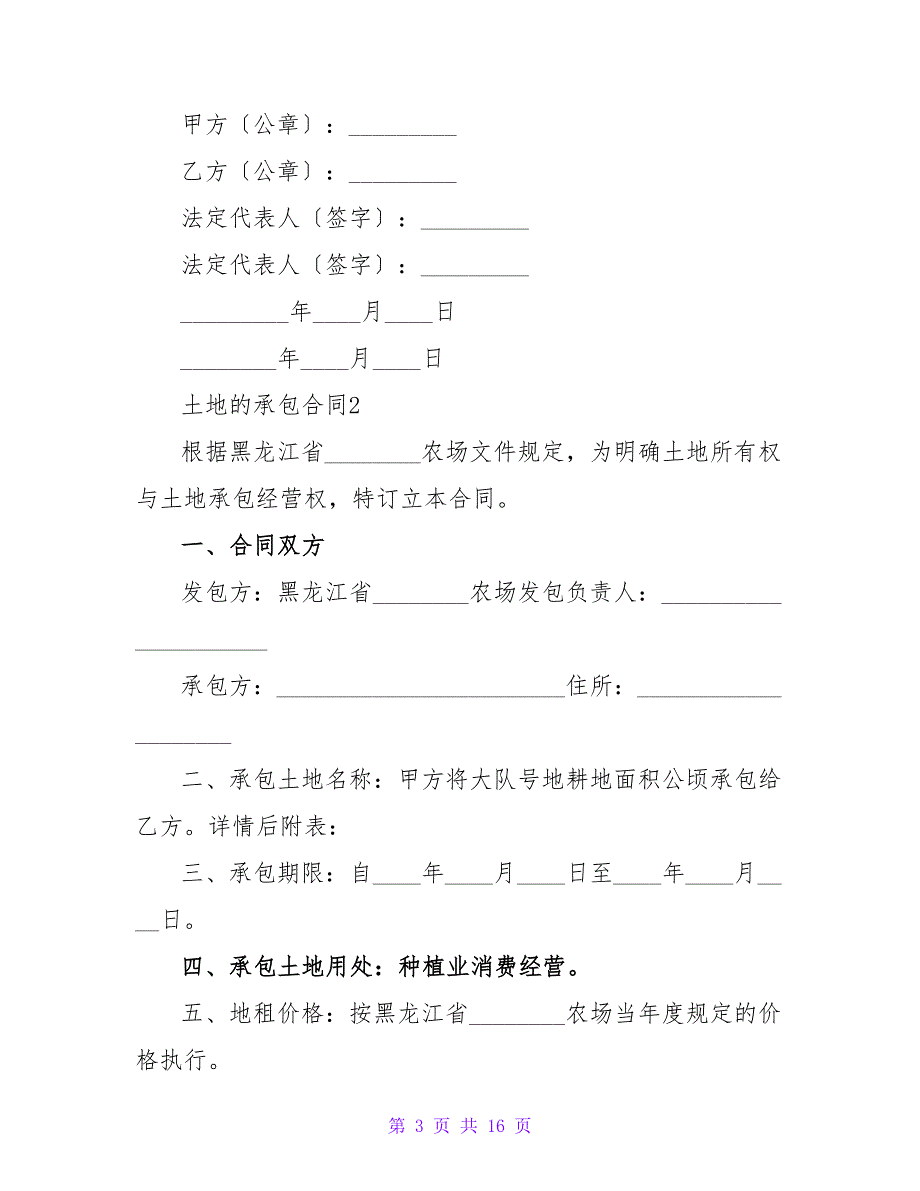 甲方〔公章〕：_________
乙方〔公章〕：_________
法定代表人〔签字〕：_________
法定代表人〔签字〕：_________
_________年____月____日
________年____月____日
土地的承包合同2
根据黑龙江省________农场文件规定，为明确土地所有权
与土地承包经营权，特订立本合同。
一、合同双方
发包方：黑龙江省________农场发包负责人：__________
___________
承包方：________________________住所：____________
________
二、承包土地名称：甲方将大队号地耕地面积公顷承包给
乙方。详情后附表：
三、承包期限：自____年____月____日至____年____月__
__日。
四、承包土地用处：种植业消费经营。
五、地租价格：按黑龙江省________农场当年度规定的价
格执行。
第 3 页 共 16 页